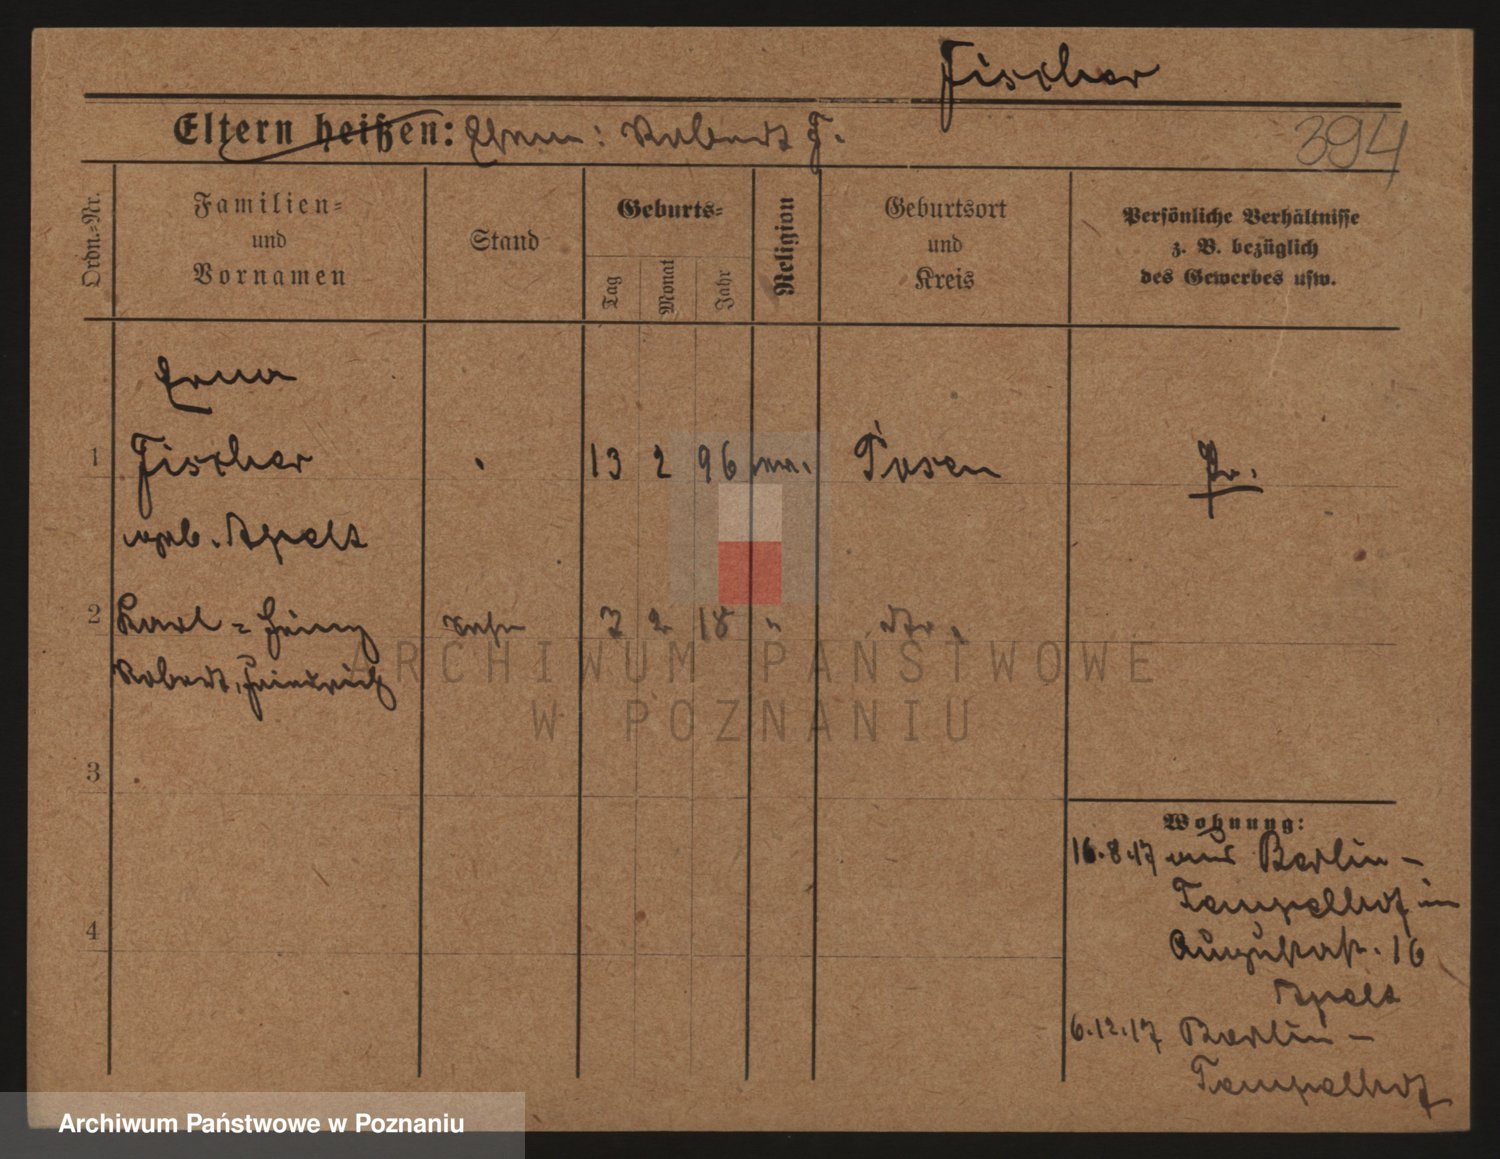 Fischer
Eltern heißen: Ehem: Robert F.
394
Ordn.-Nr.
Familien-
und
Vornamen
Stand
Geburts-
Tag
Monat
Jahr
Religion
Geburtsort
und
Kreis
Persönliche Verhältnisse
z. B. bezüglich
des Gewerbes usw.
Erna
1 Fischer 13 2 96 Posen Pr.
Apelt
2 Karl = Heinz Sohn 7 2 18 " dto.
Robert, Friedrich
3
4
Wohnung:
16.8.17 Berlin -
Tempelhof in
Augustastr. 16
Apelt
6.12.17 Berlin -
Tempelhof
ARCHIWUM PAŃSTWOWE
W POZNANIU
Archiwum Państwowe w Poznaniu